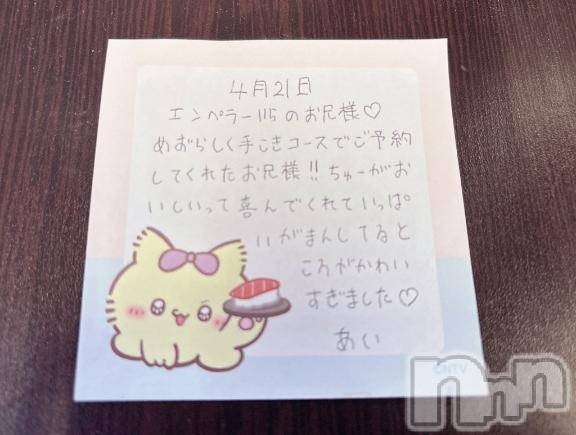 4月21日
エンペラー115のお兄様♡
めずらしく手こきコースでご予約
してくれたお兄様!!ちゅーがお
いしいって喜んでくれていっぱ
いがまんしてると
ころがかわい
すぎました♡
あい
©NTV
nnn